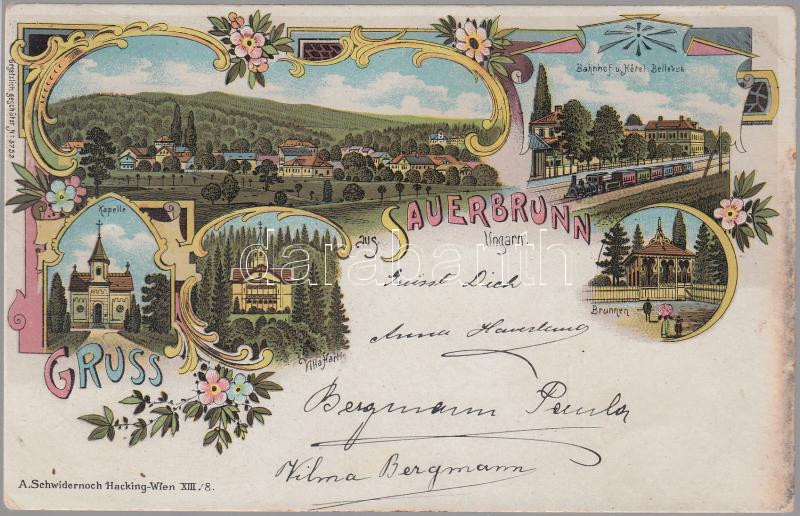 Gesetzlich geschützt. Nr. 3752
Bahnhof u. Hôtel Bellevue
Kapelle
Villa Hartig
Brunnen
GRUSS
aus SAUERBRUNN
Ungarn.
Grüsst Dich
Anna
Bergmann Paula
Vilma Bergmann
A. Schwidernoch Hacking-Wien XIII./8.
darabanth